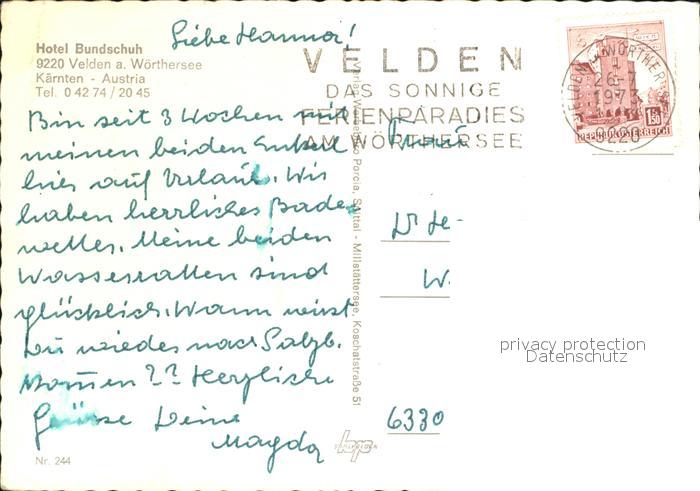 Hotel Bundschuh
9220 Velden a. Wörthersee
Kärnten - Austria
Tel. 0 42 74 / 20 45
Liebe Hanna!
Bin seit 3 Wochen mit
meinen beiden Enkeln
hier auf Urlaub. Wir
haben herrliches Bade-
wetter. Meine beiden
Wasserratten sind
glücklich. Wann wirst
Du wieder nach Salzb.
kommen?? Herzliche
Grüsse Deine
Magda
Nr. 244
VELDEN
DAS SONNIGE
FERIENPARADIES
AM WÖRTHERSEE
VELDEN WÖRTHERSEE
26-7
1973
9220
1.50
REPUBLIK ÖSTERREICH
Porcia, Spittal - Millstättersee, Koschatstraße 51
Frau
W.
6330
privacy protection
Datenschutz